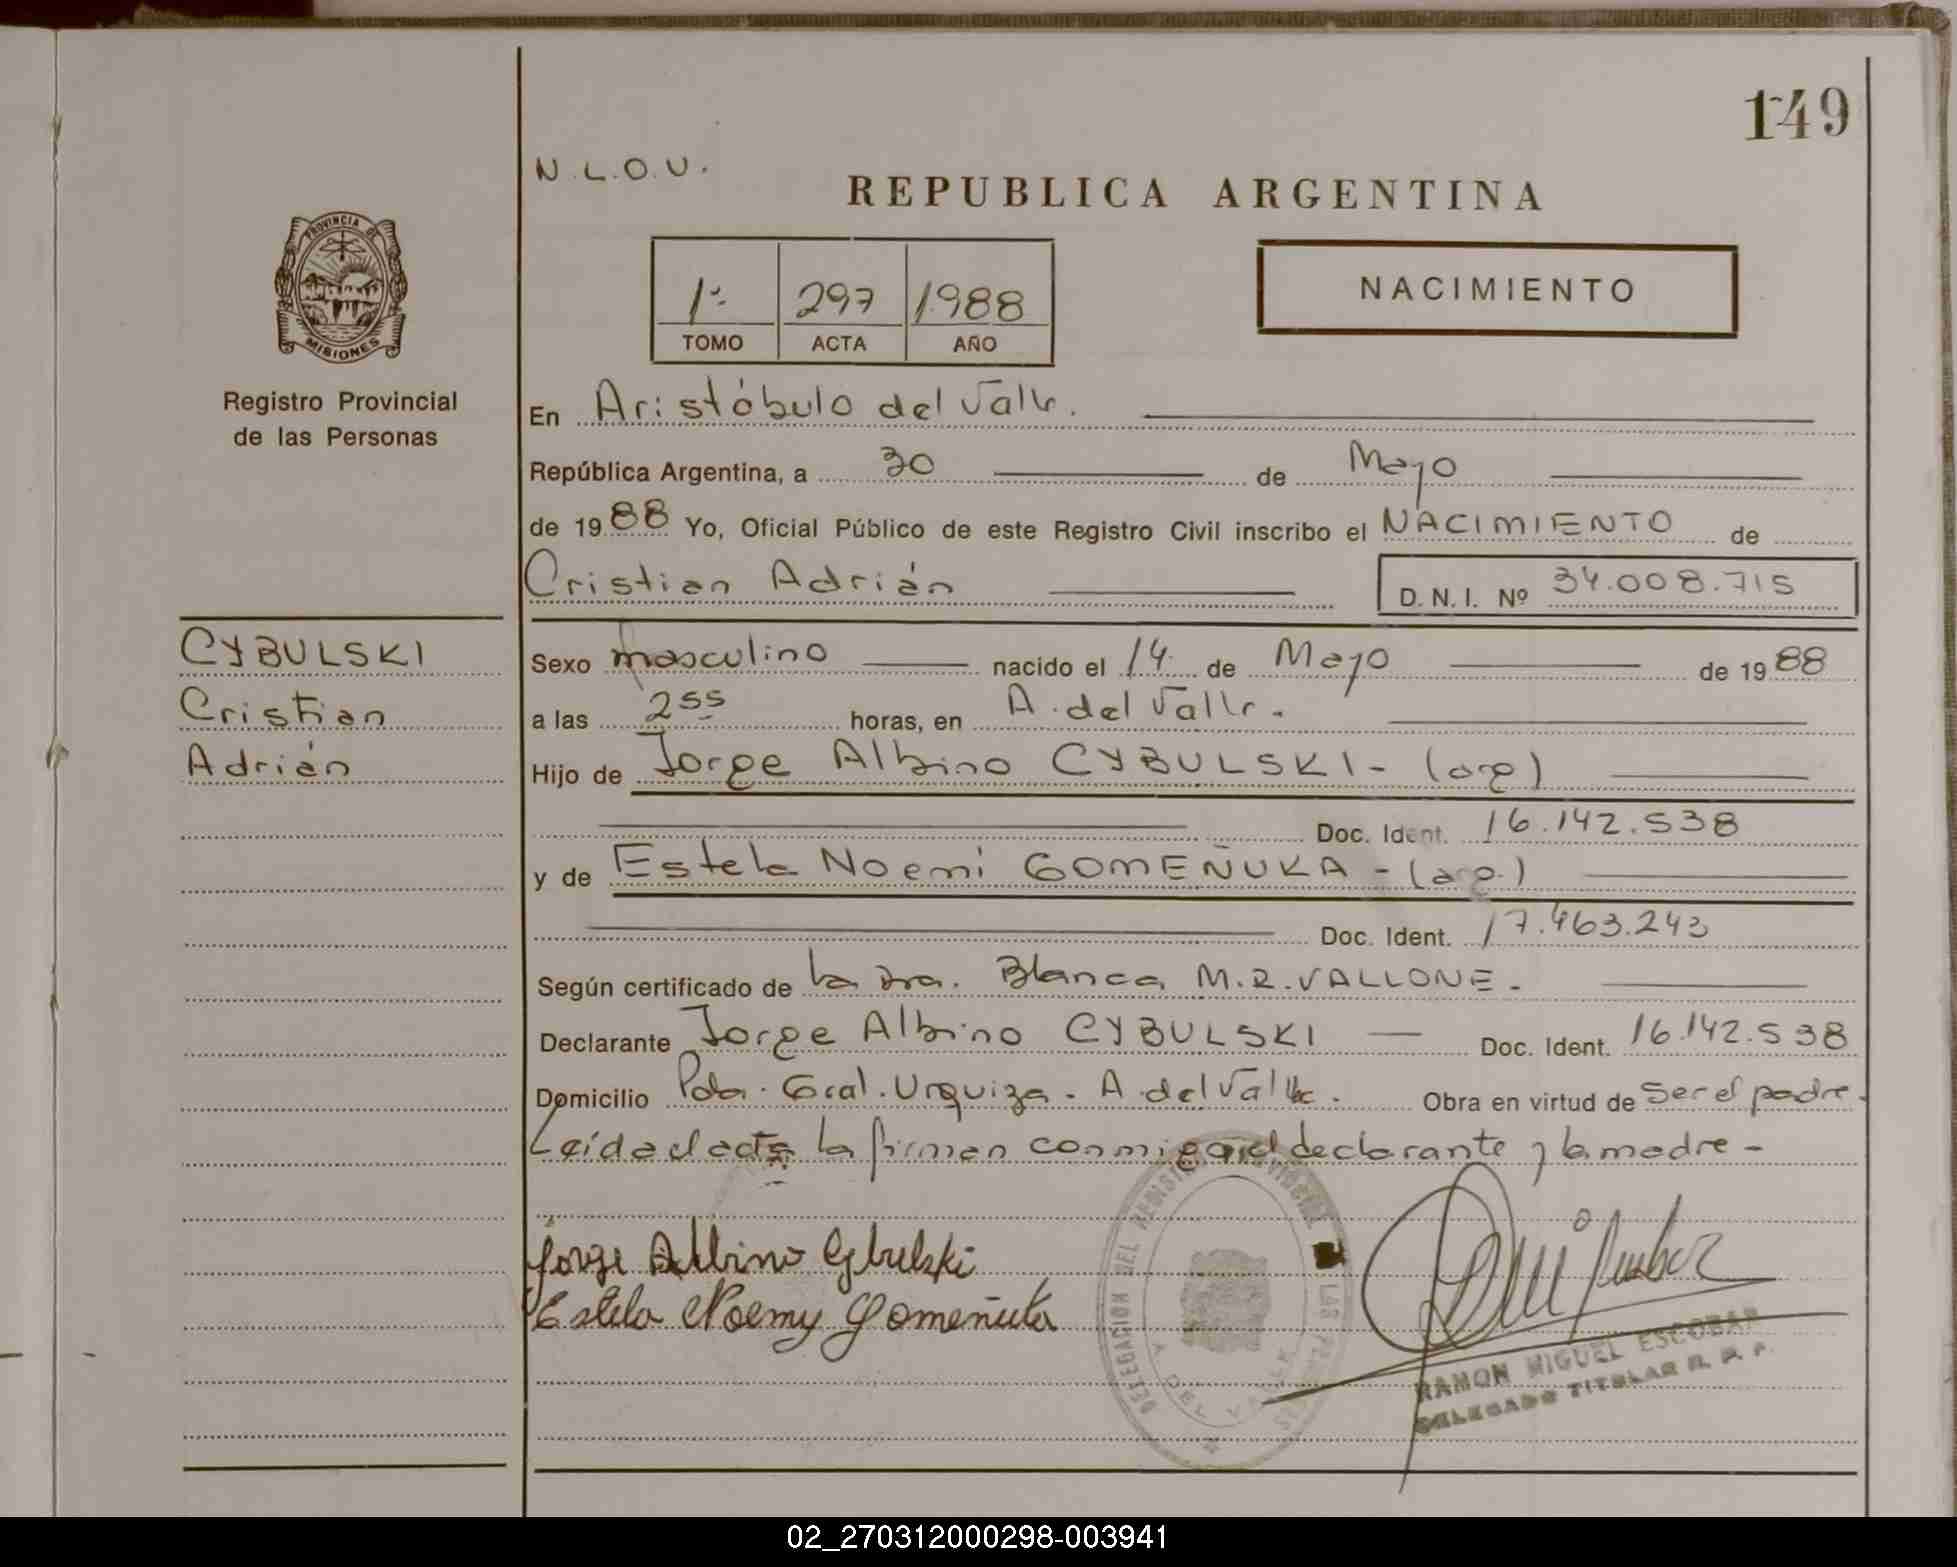 149
N.L.O.U.
REPUBLICA ARGENTINA
PROVINCIA DE
MISIONES
1º
297
1988
TOMO
ACTA
AÑO
NACIMIENTO
Registro Provincial
de las Personas
En Aristóbulo del Valle.
República Argentina, a 30 de Mayo
de 1988 Yo, Oficial Público de este Registro Civil inscribo el NACIMIENTO de
Cristian Adrián D.N.I. Nº 34.008.715
CYBULSKI
Cristian
Adrián
Sexo masculino nacido el 14 de Mayo de 1988
a las 2 55 horas, en A. del Valle.
Hijo de Jorge Albino CYBULSKI - (arg)
Doc. Ident. 16.142.538
y de Estela Noemi GOMEÑUKA - (arg.)
Doc. Ident. 17.463.243
Según certificado de la Dra. Blanca M.R. VALLONE.
Declarante Jorge Albino CYBULSKI Doc. Ident. 16.142.538
Domicilio Pda. Gral. Urquiza. A. del Valle. Obra en virtud de ser el padre.
Leída el acta la firman conmigo el declarante y la madre -
Jorge Albino Cybulski
Estela Noemy Gomeñuka
DELEGACION DEL REGISTRO PROVINCIAL DE LAS PERSONAS
A. DEL VALLE
RAMON MIGUEL ESCOBAR
DELEGADO TITULAR R. P. P.
02_270312000298-003941